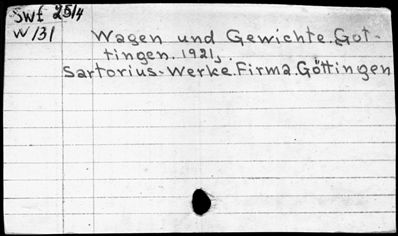 SWt 25/4
W/31
Wagen und Gewichte. Göt-
tingen. 1921,.
Sartorius-Werke. Firma. Göttingen